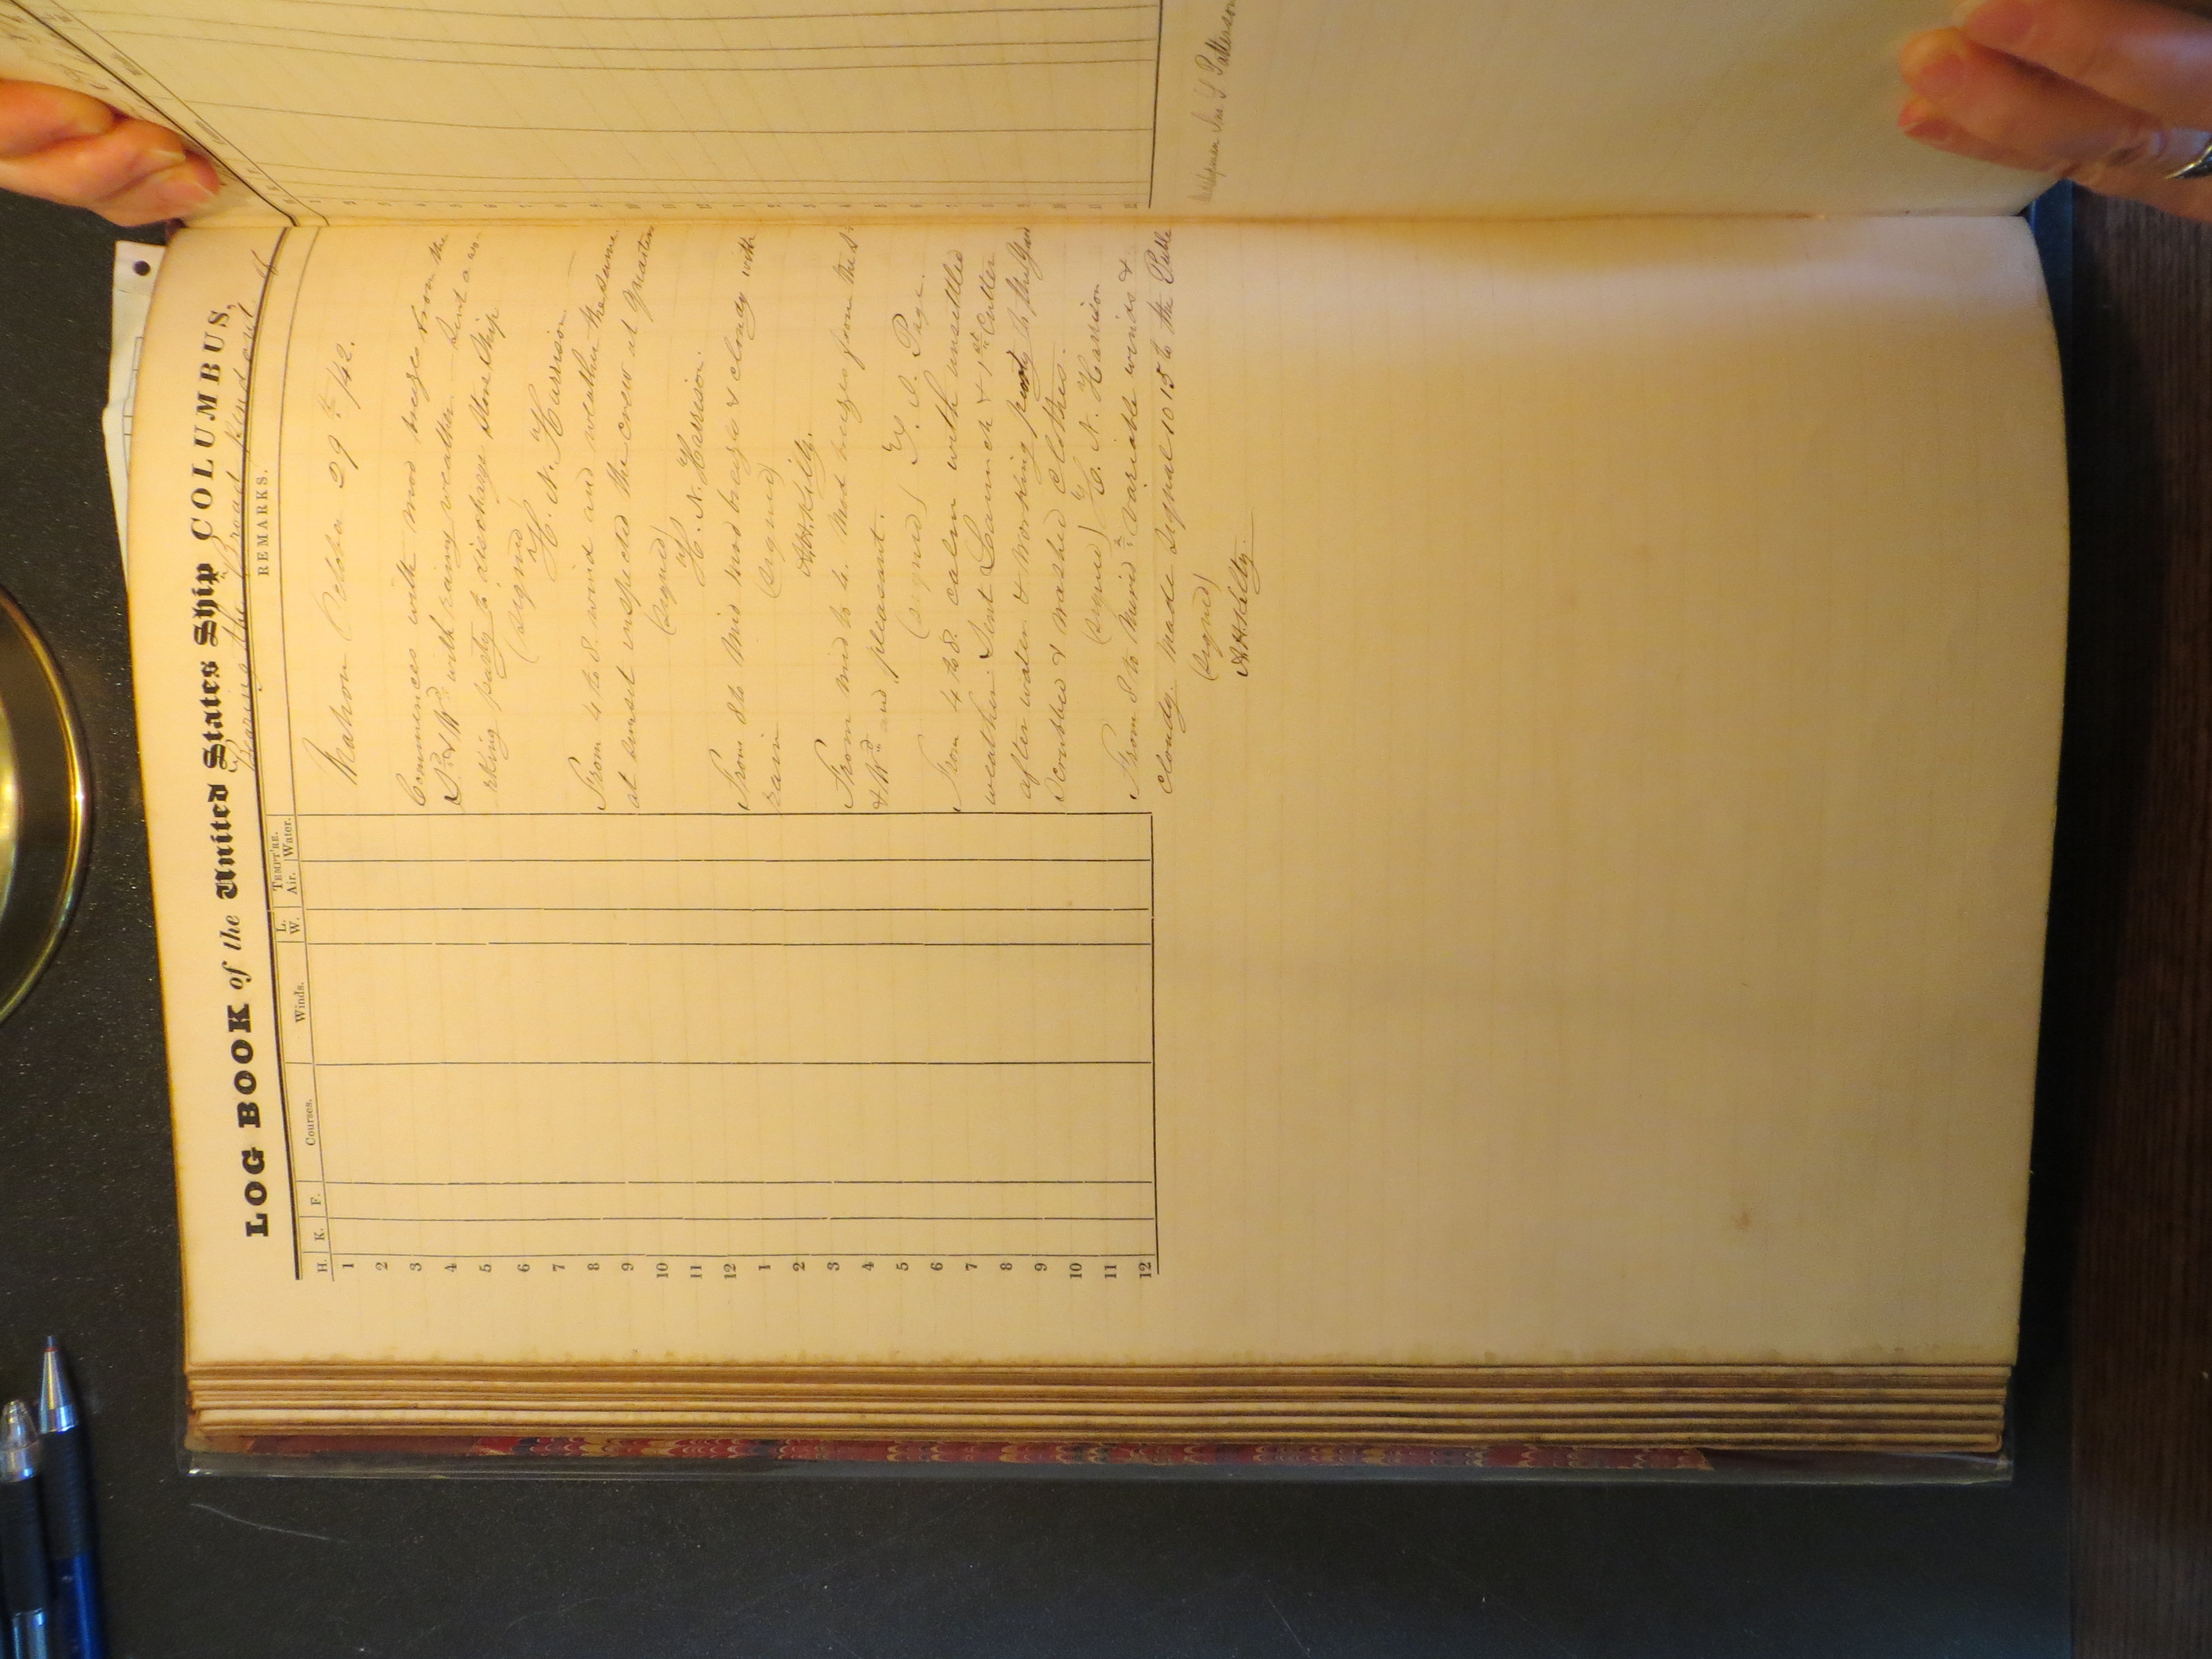 LOG BOOK of the United States Ship COLUMBUS,
Bearing the Broad pendant of
H. K. F. Courses. Winds. L. W. TEMPT'RE. Air. Water. REMARKS.
1
2
3
4
5
6
7
8
9
10
11
12
1
2
3
4
5
6
7
8
9
10
11
12
Mahon October 29th /42.
Commences with mod breeze from the
with rainy weather. Sent a wo-
rking party to discharge Store Ship
(signed)
H. N. Harrison
From 4 to 8. wind and weather the same.
at sunset inspected the crew at quarters
(signed)
H. N. Harrison.
From 8 to Mid mod breeze & cloudy with
rain
(signed)
A.H. Kilty.
From mid to 4. Mod breezes from the
and pleasant.
(signed) Page.
From 4 to 8. calm with unsettled
weather. Sent Launch & 1st Cutter
after water & Working party to the Yard
Scrubbed & washed clothes.
(signed) H. N. Harrison
From 8 to Merid: Variable winds &
cloudy. Made signal 1015 to the
(signed)
A.H. Kilty.
Patterson